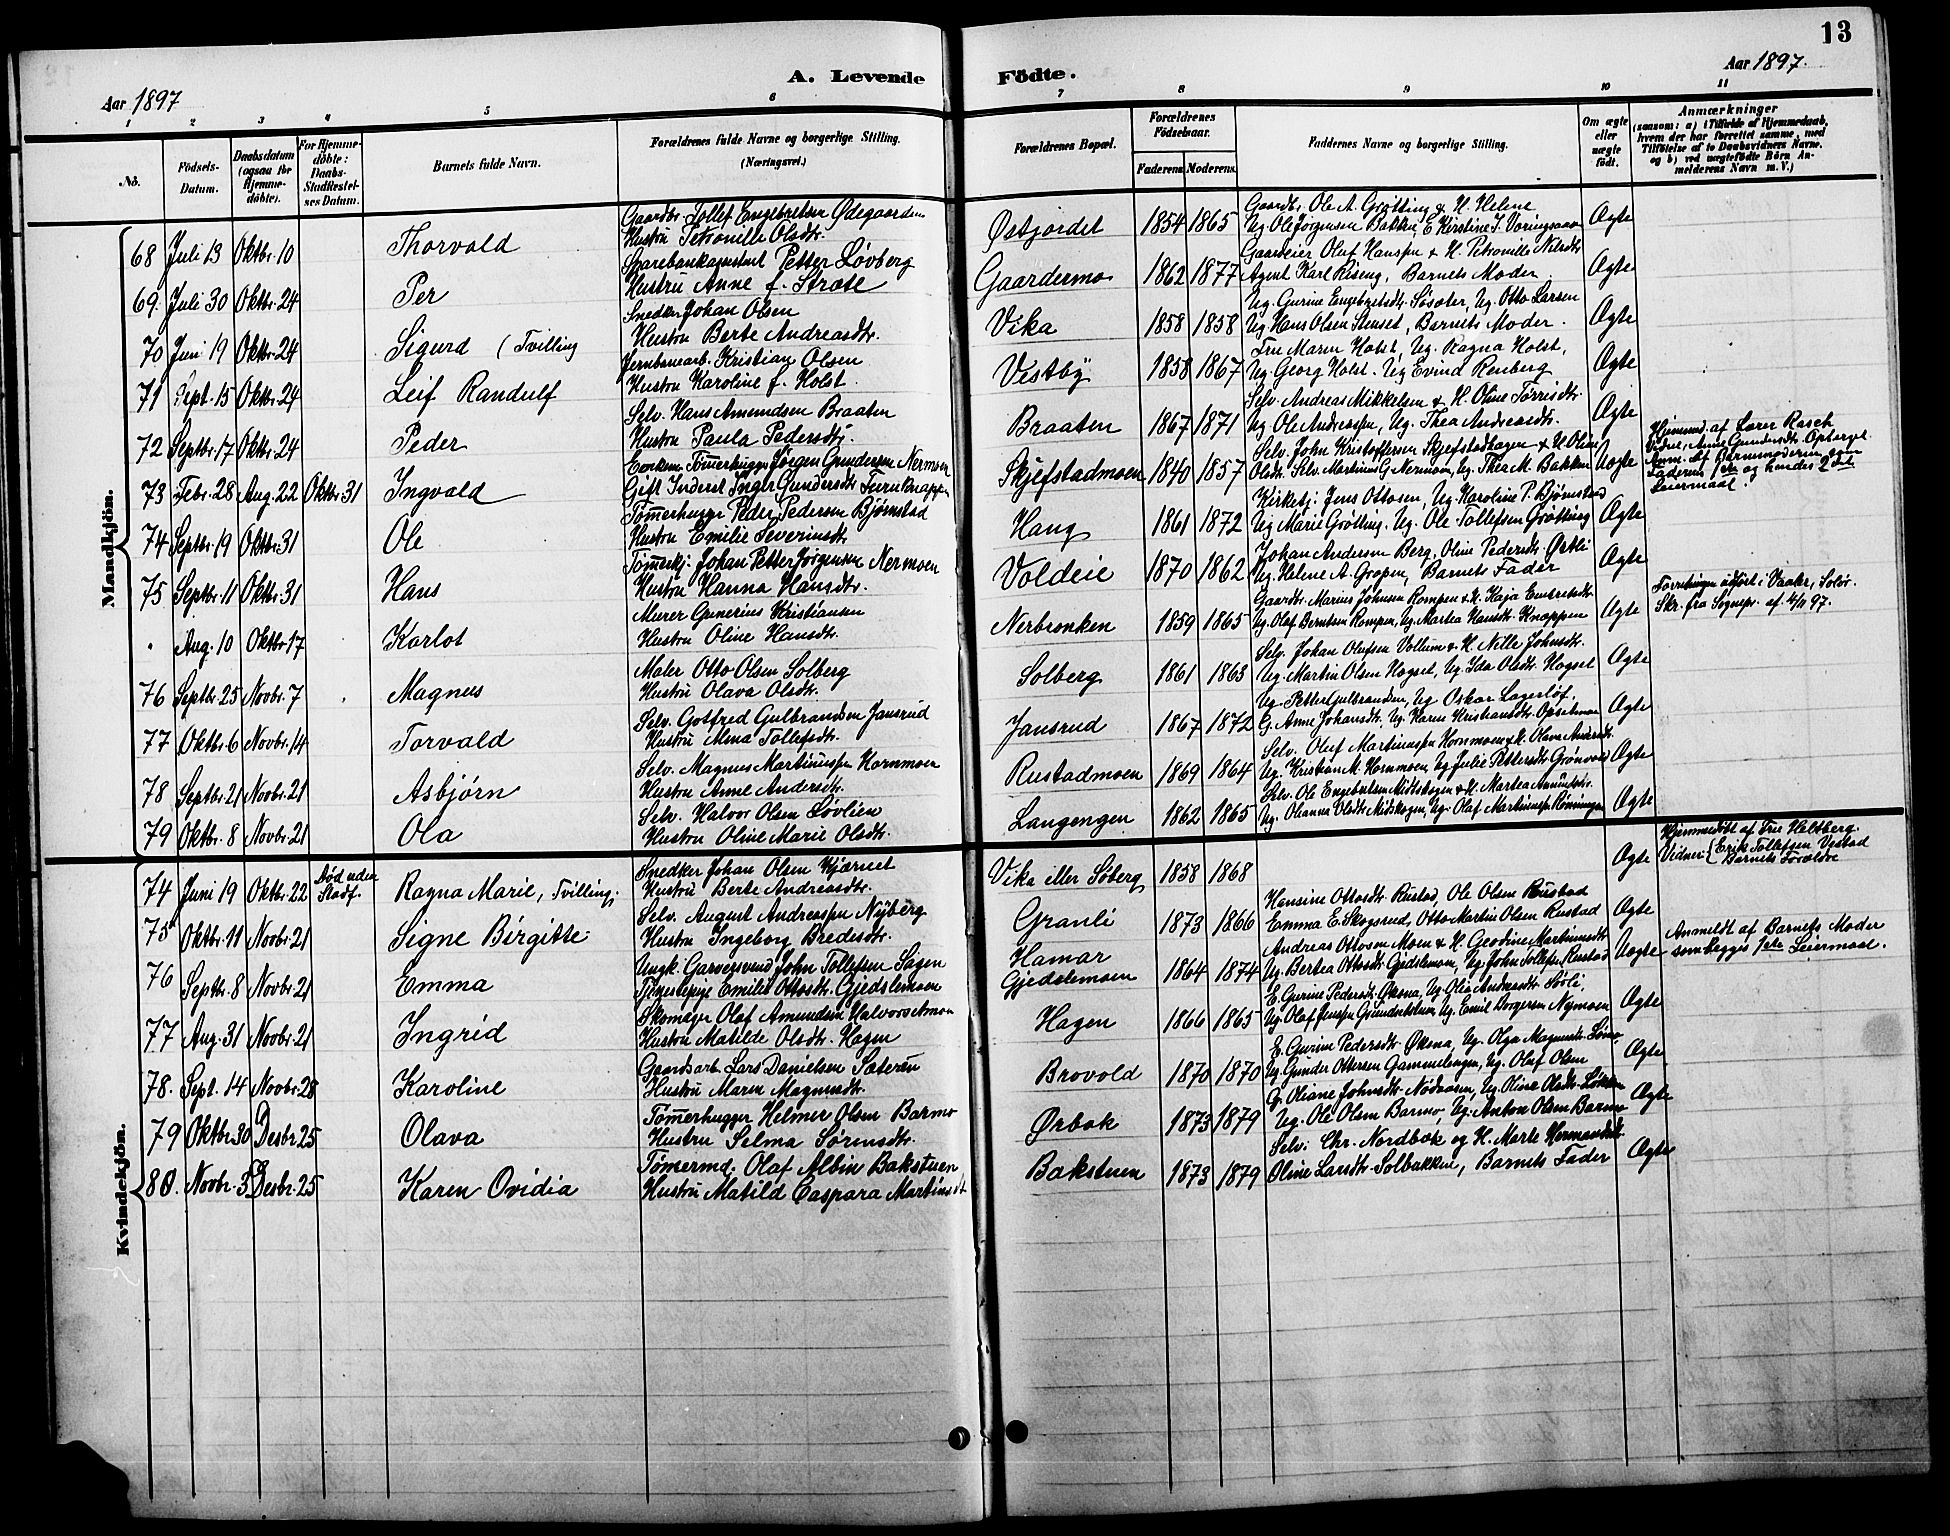 13
A. Levende Födte.
Aar 1897
Aar 1897.
1 2 3 4 5 6 7 8 9 10 11
No.
Födsels-Datum.
Daabsdatum (ogsaa for Hjemme-döbte).
For Hjemme-döbte: Daabs-Stadfæstel-ses Datum.
Barnets fulde Navn.
Forældrenes fulde Navne og borgerlige Stilling. (Næringsvei.)
Forældrenes Bopæl.
Forældrenes Födselsaar.
Faderens
Moderens.
Faddernes Navne og borgerlige Stilling.
Om ægte eller uægte födt.
Anmærkninger
(saasom: a) i Tilfælde af Hjemmedaab, hvem der har forrettet samme, med Tilföielse af to Daabsvidners Navne, og b) ved uægtefödte Börn An-melderens Navn m. V.)
Mandkjön.
68 Juli 13 Oktbr. 10 Thorvald
Gaardbr. Tollef Engebretsen Ødegaarden
Hustru Petronille Olsdtr.
Østjordet 1854 1865
Gaardbr. Ole A. Grøtting & H. Helene
Ug. Ole Jørgensen Bakken, E. Kirstine J.
Ægte
69. Juli 30 Oktbr. 24 Per
Sparebankassistent Petter Løvberg
Hustru Anne f. Stræte
Gaardermo 1862 1877
Gaardeier Oluf Hanssen & H. Petronille Nilsdtr
Agent Karl Riseng, Barnets Moder.
Ægte
70 Juni 19 Oktbr. 24 Sigurd (Tvilling
Snedker Johan Olsen
Hustru Berte Andreasdtr.
Vika 1858 1858
Ug. Gurine Engebretsdtr. Søsæter, Ug. Otto Larsen
Ug. Hans Olsen Stenset, Barnets Moder.
Ægte
71 Sept. 15 Oktbr. 24 Leif Randulf
Jernbanearb. Kristian Olsen
Hustru Karoline f. Holst.
Vestby 1858 1867
Fru Maren Holst, Ug. Ragna Holst,
Ug. Georg Holst. Ug Evind Renberg
Ægte
72 Septbr. 17 Oktbr. 24 Peder
Selv. Hans Amundsen Braaten
Hustru Paula Pedersdtr.
Braaten 1867 1871
Selv. Andreas Mikkelsen & H. Oline Tørrisdtr.
Ug. Ole Andreassen, Ug. Thea Andreasdtr.
Ægte
73 Febr. 28 Aug. 22 Oktbr. 31 Ingvald
Enkem. Tømmerhugger Jørgen Gundersen Nermoen
Gift Inderst Inger Gundersdtr
Skjefstadmoen 1840 1857
Selv. John Kristoffersen Skjefstadhagen & H. Oline
Olsdtr. Selv. Martinus G. Nermoen, Ug. Thea M. Bakken
Uægte
Hjemmed. af Loren Rasch
Vidne, Anne Gundersdtr Opberget.
Anm. af Barnemoderen som
Faderens 1ste og hendes 2det
Leiermaal.
74 Septbr. 19 Oktbr. 31 Ole
Tømmerhugger Peder Pedersen Bjørnstad
Hustru Emilie Severinsdtr.
Haug 1861 1872
Kirketj. Jens Ottosen, Ug. Karoline P. Bjørnstad
Ug Marie Grøtting, Ug. Ole Tollefsen Grøtting
Ægte
75 Septbr. 11 Oktbr. 31 Hans
Tømmerkj. Johan Petter Jørgensen Nermoen
Hustru Hanna Hansdtr.
Voldeie 1870 1862
Johan Andersen Berg, Oline Pedersdtr Østli
Ug. Helene A. Gropen, Barnets Fader
Ægte
" Aug. 10 Oktbr. 17 Karlot
Murer Gunerius Kristiansen
Hustru Oline Hansdtr.
Nerbronken 1859 1865
Gaardbr. Marius Johnsen Rompen & H. Kaja Embretsdtr
Ug. Olaf Berntsen Rompen, Ug. Martea Hansdtr. Knappen
Ægte
Forretningen udført i Vaaler, Solør.
Skr. fra Sognepr. af 4/11 97.
76 Septbr. 25 Novbr. 7 Magnus
Maler Otto Olsen Solberg
Hustru Olava Olsdtr.
Solberg 1861 1863
Selv. Johan Olufsen Vollum & H. Nille Johnsdtr.
Ug. Martin Olsen Hogset, Ug. Ida Olsdtr. Hogset
Ægte
77 Oktbr. 6 Novbr. 14 Torvald
Selv. Gotfred Gulbrandsen Jansrud
Hustru Mena Tollefsdtr.
Jansrud 1867 1872
Ug. Petter Gulbrandsen, Ug. Oskar Lagerløf,
G. Anne Johansdtr. Ug. Karen Kristiansdtr. Opsetmoen
Ægte
78 Septbr. 21 Novbr. 21 Asbjørn
Selv. Magnus Martinussen Hornmoen
Hustru Anne Andersdtr.
Rustadmoen 1869 1864
Selv. Oluf Martinussen Hornmoen & H. Olava
Ug. Kristian M. Hornmoen, Ug Julie Pettersdtr Grønvold
Ægte
79 Oktbr. 8 Novbr. 21 Ola
Selv. Halvor Olsen Løvlien
Hustru Oline Marie Olsdtr.
Langengen 1862 1865
Selv. Ole Engebretsen Midtskogen & H. Martea Amundsdtr.
Ug. Oleanna Olsdtr. Midskogen, Ug. Olaf Martinussen Rønningen
Ægte
Kvindekjön.
74 Juni 19 Oktbr. 22 Død uden Stadf. Ragna Marie, Tvilling.
Snedker Johan Olsen Kjærnet
Hustru Berte Andreasdtr.
Vika eller Søberg 1858 1868
Ægte
Hjemmedøbt af Fru Heltberg.
Vidner: Erik Tollefsen Vestad
Barnets Forældre
75 Oktbr. 11 Novbr. 21 Signe Birgitte
Selv. August Andreassen Nyberg
Hustru Ingeborg Bredesdtr.
Granli 1873 1866
Hansine Ottosdtr. Rustad, Ole Olsen Rustad
Emma E. Skogsrud, Otto Martin Olsen Rustad
Ægte
76 Septbr. 8 Novbr. 21 Emma
Ungk. Garversvend John Tollefsen Sagen
Tjenestepige Emilie Ottosdtr. Gjedslemoen
Hamar
Gjedslemoen 1864 1874
Andreas Ottosen Moen & H. Geodine Martinusdtr
Ug. Bertea Ottosdtr Gjedslemoen, Ug. John Tollefsen Rustad
Uægte
Anmeldt af Barnets Moder
som begges 1ste Leiermaal.
77. Aug. 31 Novbr. 21 Ingrid
Skomager Olaf Amundsen Halvorsamoen
Hustru Matilde Olsdtr. Hagen
Hagen 1866 1865
E. Gurine Pedersdtr. Øksna, Ug. Olia Andreasdtr Søli,
Ug. Olaf Jensen Grundetstuen, Ug. Emil Borgersen Nymoen
Ægte
78. Sept. 14 Novbr. 28 Karoline
Gaardsarb. Lars Danielsen Sæteren
Hustru Maren Magnusdtr.
Brovold 1870 1870
E. Gurine Pedersdtr. Øksna, Ug. Olga Magnusdtr.
Ug. Gunder Ottersen Gammelengen, Ug. Olaf Olsen
Ægte
79 Oktbr. 30 Desbr. 25 Olava
Tømmerhugger Helmer Olsen Barmo
Hustru Selma Sørensdtr.
Ørbæk 1873 1879
G. Oliane Johnsdtr. Nødaasen, Ug. Oline Olsdtr.
Ug. Ole Olsen Barmo, Ug. Anton Olsen Barmo
Ægte
80. Novbr. 3 Desbr. 25 Karen Ovidia
Tømermd. Olaf Albin Bakstuen
Hustru Matild Caspara Martinsdt
Bakstuen 1873 1879
Selv. Chr. Nordbæk og H. Marte Hermansdtr.
Oline Larsdtr. Solbakken, Barnets Fader
Ægte